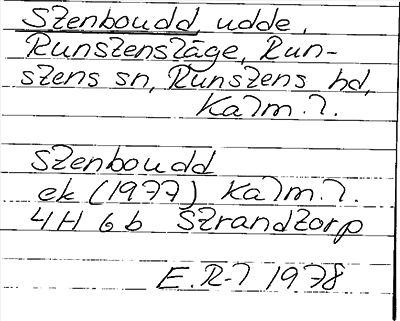 Stenboudd, udde,
Runstensläge, Run-
stens sn, Runstens hd,
Kalm. l.
Stenboudd
ek (1977) Kalm. l.
4H 6b Strandtorp
E.R-l 1978